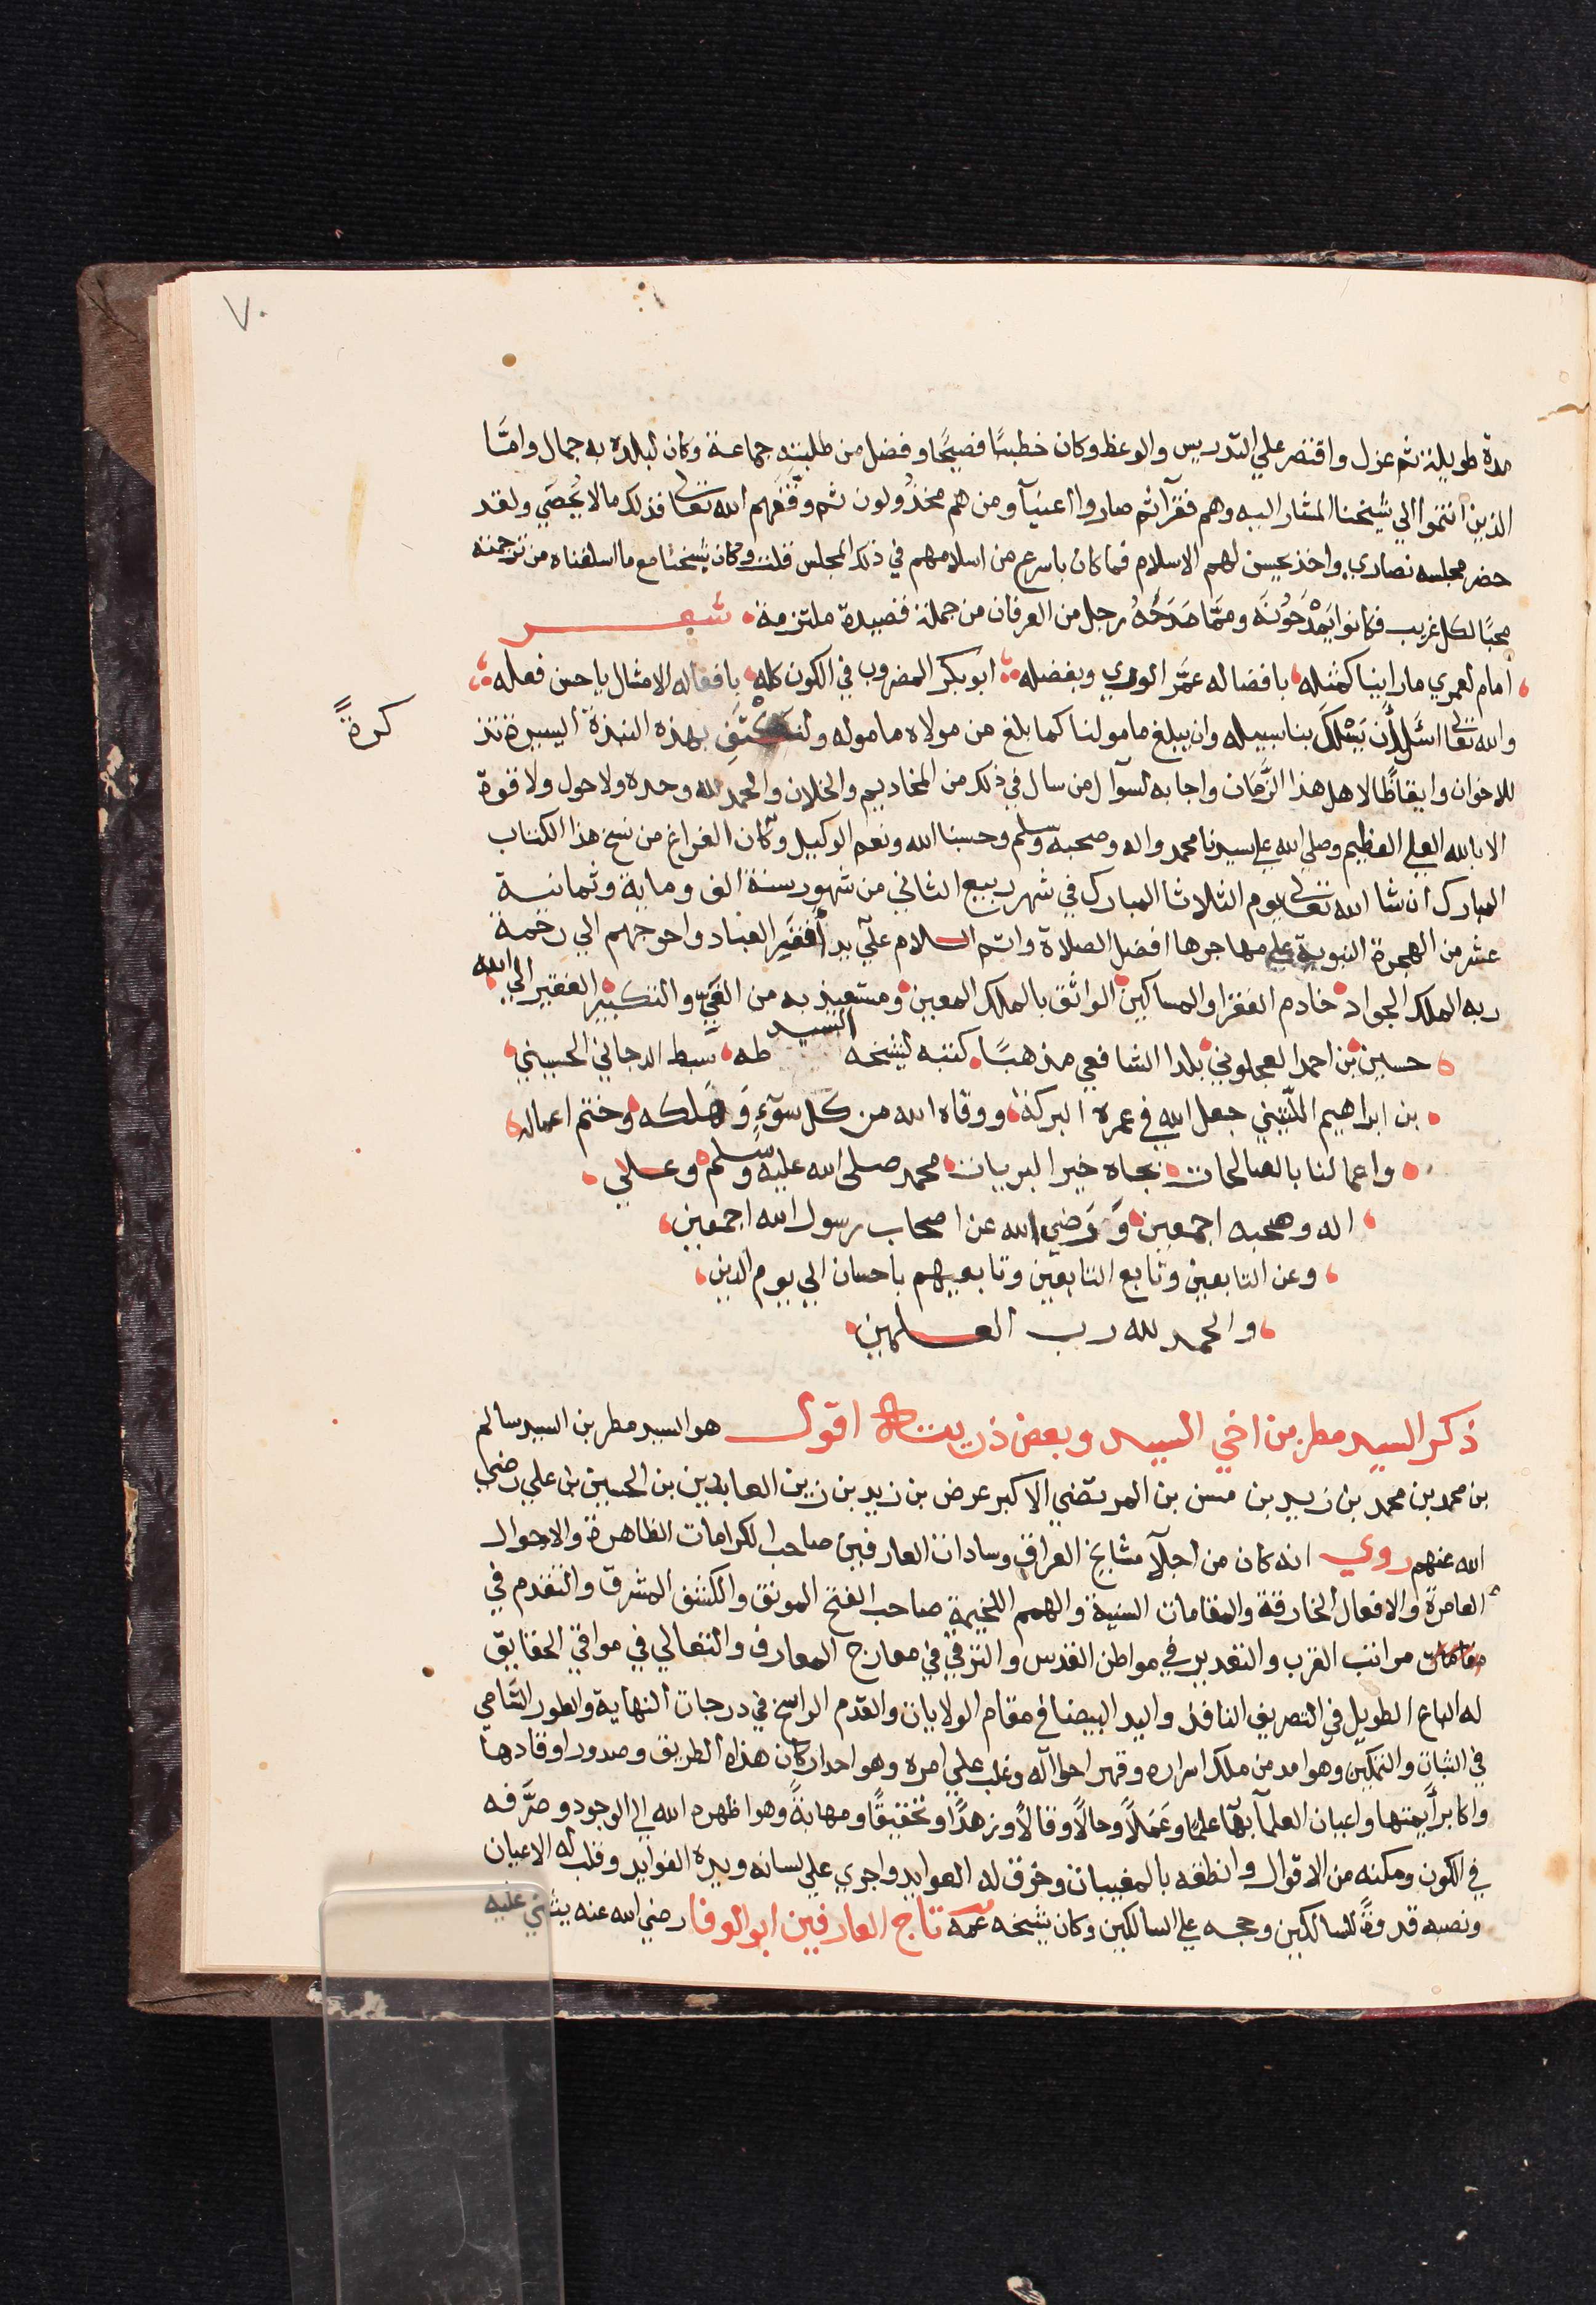 ٧٠
مدة طويلة ثم عزل واقتصر علي التدريس والوعظ وكان خطيبًا فصيحًا وفضل من طلبته جماعة وكان لبلده به جمال وامَّا
الذين انتموا الي شيخنا المشار اليه وهم فقرآ ثم صاروا اغنيآ ومن هم مخذولون ثم وفقهم الله تعالى فذلك مالا يُحصَي ولقد
حضر مجلسه نصاري واخذ يحسن لهم الاسلام فما كان باسرع من اسلامهم في ذلك المجلس قلت وكان شيخنا مع ما اسلفناه من ترجمته
محبًا لكل غريب فكانوا يَمْدَحُونَه وممَّا مَدَحَهُ رجل من العرفان من جملة قصيدة ملتزمة شعر
امام لعمري مارايناكمثله بافضاله عمَّر الوري وبفضله ابو بكر المضروب في الكون كله بافعاله الامثال ياحسن فعله
والله تعالى اسَئل أن يَسْلك بنا سبيله وان يبلغ مامولنا كما بلغ من مولاه ماموله ولنكتَفِ بهذه النبذة اليسيرة تذ
كرةً
للاخوان وايقاظًا لاهل هذا الزَّمَان واجابه لسوآل من سال في ذلك من المخاديم والخلان والحمد لله وحده ولا حول ولا قوة
الا بالله العلي العظيم وصلي الله علي سيدنا محمد واله وصحبه وسلم وحسبنا الله ونعم الوكيل وكان الفراغ من نسخ هذا الكتاب
المبارك ان شا الله تعالى يوم الثلاثا المبارك في شهر ربيع الثاني من شهور سنة الف وماية وثمانية
عشر من الهجرة النبوية علي مهاجرها افضل الصلاة واتم السلام علي يد أفقَر العباد واحوجهم الي رحمة
ربه الملك الجواد خادم الفقرا والمساكين الواثق بالملك المعين ومستعيذ به من الغَيّ والتكبير الفقير الي الله
حسين بن احمد العجلوني بلدا الشافعي مذهبًا كتبه لشيخه السيد طه سبط الدجاني الحسيني
بن ابراهيم جعل الله في عمره البركة ووقاه الله من كل سوٓء وَهَلكه وختم اعماله
واعمالنا بالصالحات بجاه خير البريات محمد صلى الله عليه وسلم وعلي
اله وصحبه اجمعين وَرَضيَ الله عن اصحاب رسول الله اجمعين
وعن التابعين وتابع التابعين وتابعيهم باحسان الي يوم الدين
والحمد لله رب العلمين
ذكر السيد مطر بن اخي السيد وبعض ذريته اقول هو السيد مطر بن السيد سالم
بن محمد بن محمد بن زيد بن حسن بن المرتضي الاكبر عرض بن زيد بن زين العابدين بن الحسين بن علي رضي
الله عنهم روي انه كان من اجلآ مشايخ العراق وسادات العارفين صاحب الكرامات الظاهرة والاحوال
العامرة والافعال الخارقة والمقامات السنية والهمم صاحب الفتح المونق والكشف المشرق والتقدم في
مراتب القرب والتقدير في مواطن القدس والترقي في معارج المعارف والتعالي في مواقي الحقايق
له الباع الطويل في التصريف النافذ واليد البيضا في مقام الولايات والقدم الراسخ في درجات النهاية والطور السَّامي
في الثبات والتمكين وهو احد من ملك اسراره وقهر احوآله وغلب علي امره وهو احد اركان هذا الطريق وصدور اوتادها
واكابر أيمتها واعيان العلمآ بها علمًا وعَمَلًا وحالًا وقالًا وزهدًا وتحقيقًا ومهابةً وهو اظهره الله الي الوجود وصَرَّفه
في الكون ومكنه من الاقوال وانطقه بالمغيبات وخرق له العوايد واجري علي لسانه ويده الفوايد وقلب له الاعيان
ونصبه قدوةً للسالكين وحجه علي السالكين وكان شيخه عمه تاج العارفين ابو الوفا رضي الله عنه يثني عليه